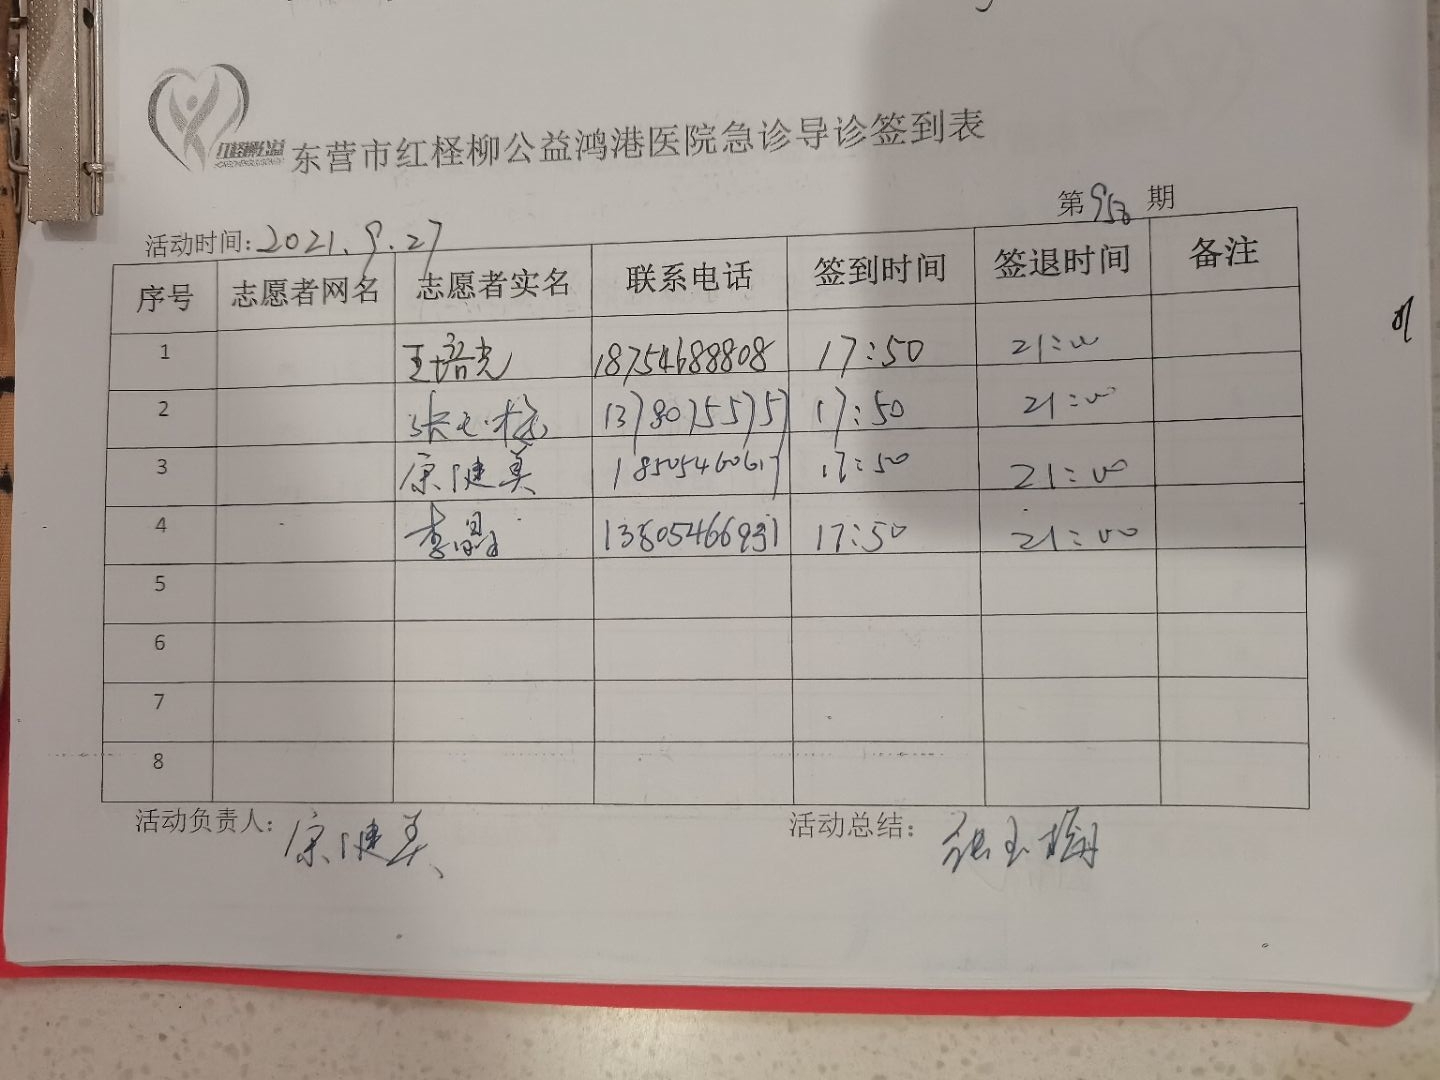 红柽柳公益
东营市红柽柳公益鸿港医院急诊导诊签到表
第 期
活动时间:2021.9.27
序号 志愿者网名 志愿者实名 联系电话 签到时间 签退时间 备注
1 18754688808 17:50 21:00
2 13780755757 17:50 21:00
3 康健美 18505460617 17:50 21:00
4 李晶 13805466931 17:50 21:00
5
6
7
8
活动负责人: 康健美
活动总结: 张玉梅